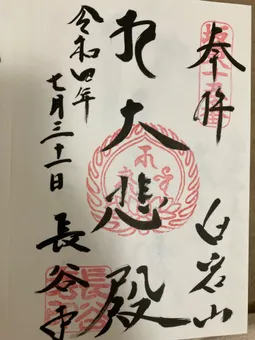 奉拝
白岩山
大悲殿
令和四年
七月三十一日
長谷寺